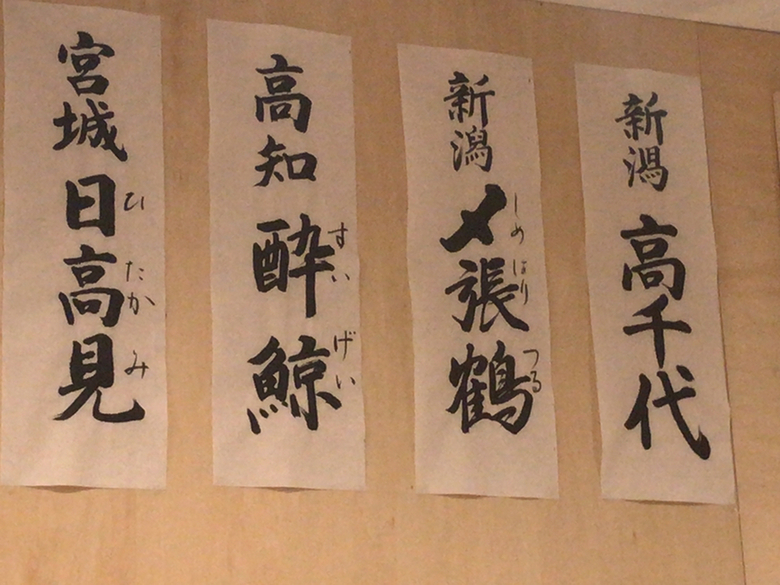 新潟 高千代
新潟 〆張鶴
しめ はり つる
高知 酔鯨
すい げい
宮城 日高見
ひ たか み